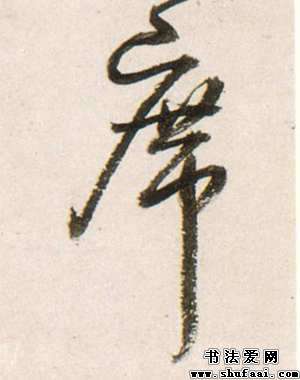 席
书法爱网
www.shufaai.com